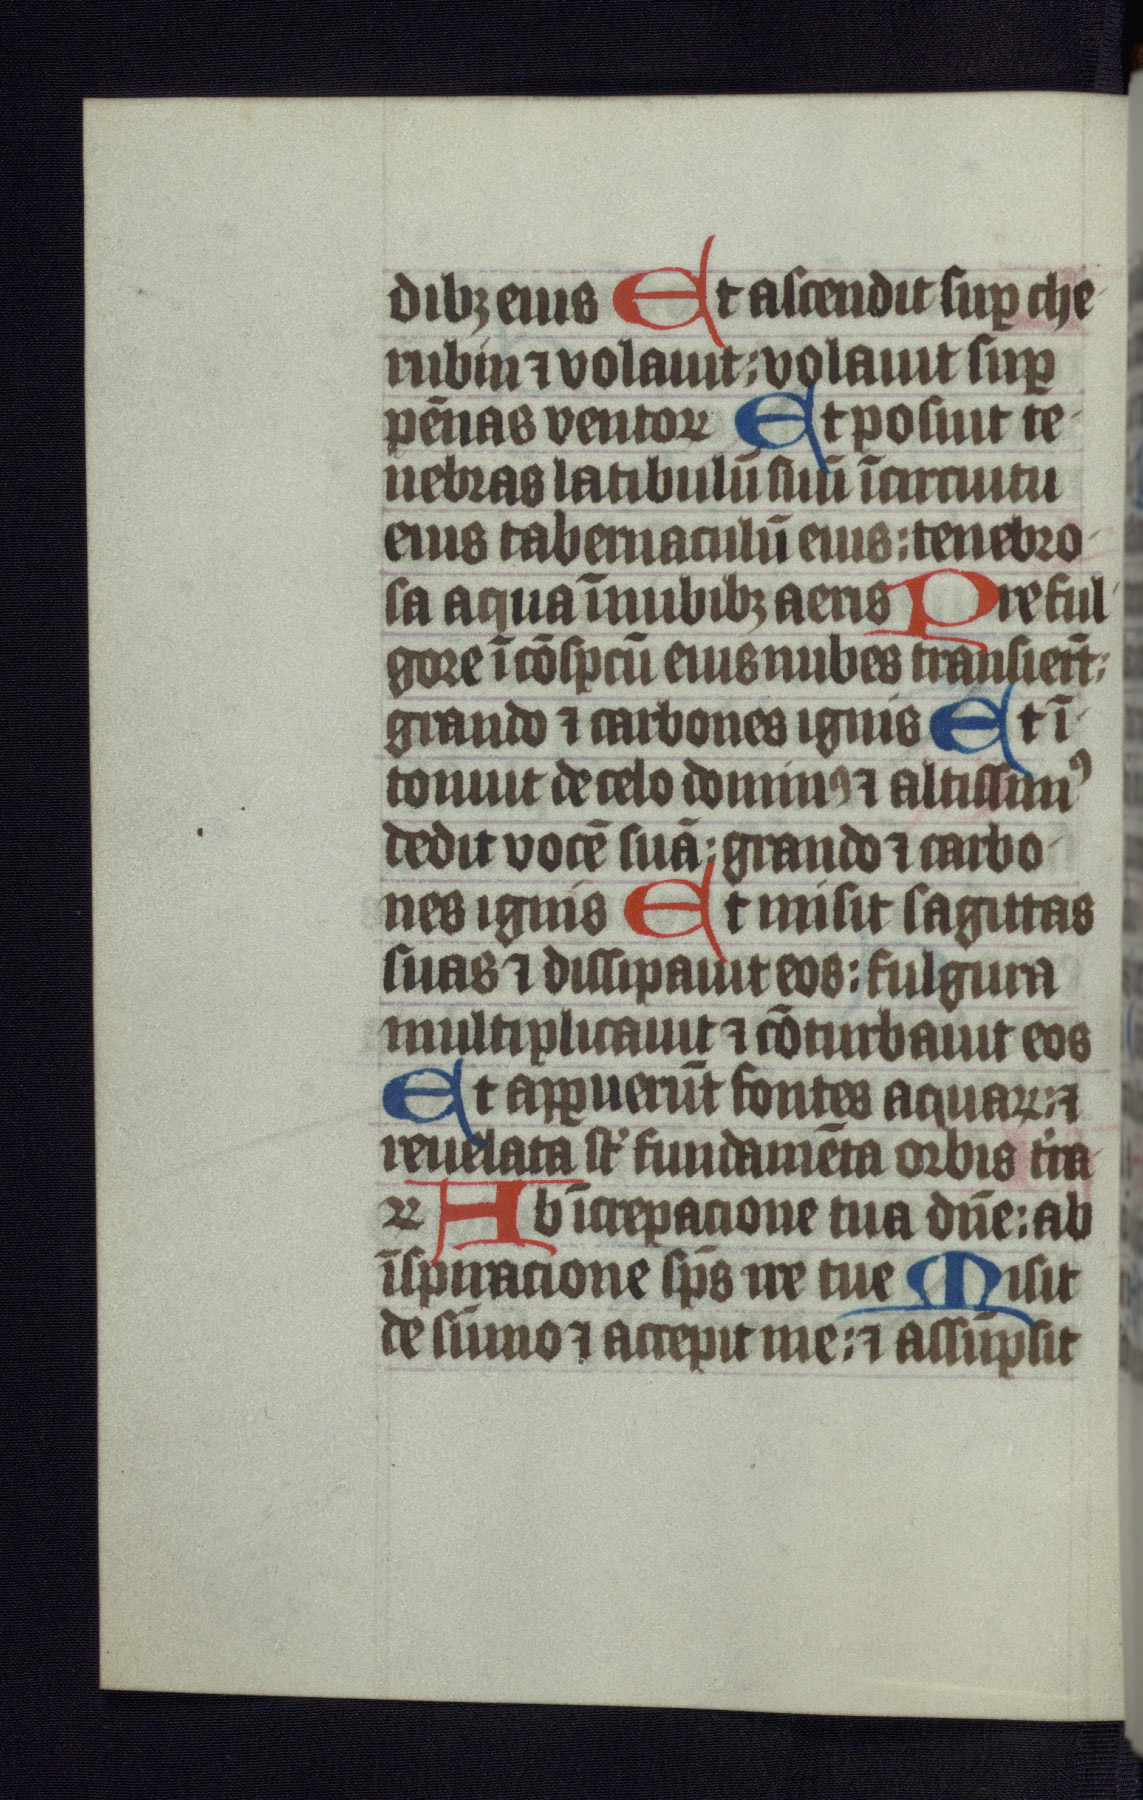 dibꝫ eius Et ascendit suꝑ che
rubin ⁊ volauit : volauit suꝑ
pēnas ventoꝝ Et posuit te
nebras latibulū suū īcircuitu
eius tabernaculū eius : tenebro
sa aqua ī nubibꝫ aeris Pre ful
gore ī cōspcū eius nubes transierūt :
grando ⁊ carbones ignis Et ī
tonuit de celo dominꝰ ⁊ altissimꝰ
dedit vocē suā : grando ⁊ carbo
nes ignis Et misit sagittas
suas ⁊ dissipauit eos : fulgura
multiplicauit ⁊ cōturbauit eos
Et apꝑuerūt fontes aquaꝝ : ⁊
reuelata st̄ fundamēta orbis t̄ra
ꝝ Ab īcrepacione tua dn̄e : ab
īspiracione sp̄s ire tue Misit
de sūmo ⁊ accepit me : ⁊ assūpsit